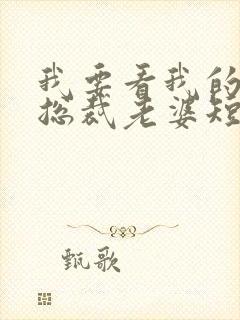 我要看我的
总裁老婆短
甄歌